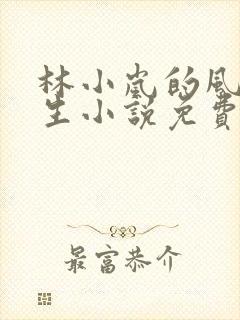 林小嵐的風
生小說免費
最富恭介